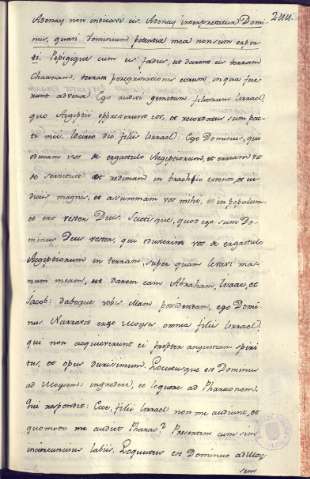 244.
Adonay non indicavi eis Adonay interpretatur Domi-
nus, quasi dominium potentiæ meæ non sum exper-
ti. Pepigique cum eis fœdus, ut darem eis terram
Chanaam, terram peregrinationis eorum in qua fue-
runt advenæ Ego audivi gemitum filiorum Israel,
quo Aegyptii oppresserunt eos, et recordatus sum pac-
ti mei. Ideo dic filiis Israel: Ego Dominus, qui
educam vos de ergastulo Aegyptiorum, et eruam
de servitute et redimam in brachio excelso, et ju-
diciis magnis, et assumam vos mihi, in populum
et ero vester Deus. Scietisque, quod ego sum Do-
minus Deus vester, qui eduxerim vos de ergastulo
Aegyptiorum in terram, super quam levavi ma-
num meam, ut darem eam Abraham, Isaac, et
Jacob: daboque vobis eam possidendam, ego Domi-
nus Narravit ergo Moyses omnia filiis Israel,
qui non acquieverunt ei propter angustiam spiri-
tus, et opus durissimum. Locutusque est Dominus
ad Moysem: ingredere, et loquere ad Pharaonem.
Qui respondit: Ecce, filii Israel non me audiunt, et
quomodo me audiet Pharao? Præsertim cum sim
incircumcisus labiis. Loquutus est Dominus ad Moy
sem